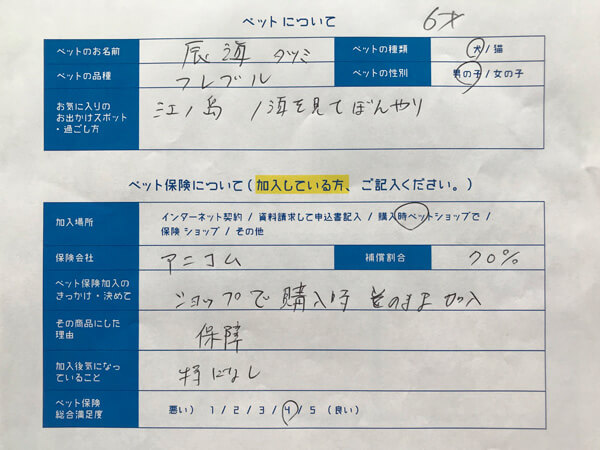 ペットについて 6才
ペットのお名前 辰海 タツミ ペットの種類 犬 / 猫
ペットの品種 フレブル ペットの性別 男の子 / 女の子
お気に入りの
お出かけスポット
・過ごし方
江ノ島 / 海を見てぼんやり
ペット保険について(加入している方、ご記入ください。)
加入場所
インターネット契約 / 資料請求して申込書記入 / 購入時ペットショップで /
保険ショップ / その他
保険会社 アニコム 補償割合 70%
ペット保険加入の
きっかけ・決めて
ショップで購入時 そのまま加入
その商品にした
理由
保障
加入後気になっ
ていること
特になし
ペット保険
総合満足度
悪い) 1 / 2 / 3 / 4 / 5 (良い)